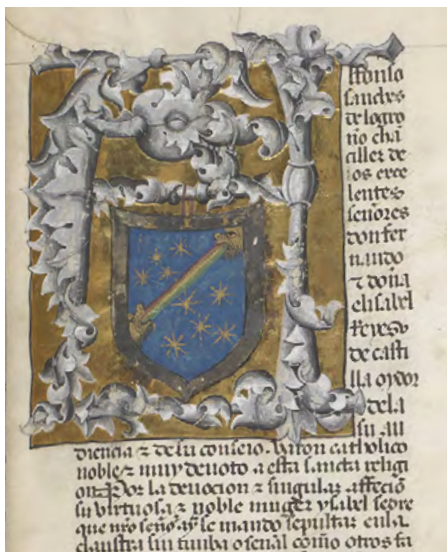 lfonso
sanches
de logro
ño chā
ciller de
los exce
lentes
señores
don fer
nando
⁊ doña
elisabel
Reyes ⁊
de casti
lla oydor
de la
su au
diencia ⁊ de su consejo. varon catholico
noble ⁊ muy deuoto a esta sancta religi
on Por la deuocion ⁊ singular affeciō
su virtuosa ⁊ noble muger ysabel
que nro señor se mando sepultar en la
claustra sin tumba o señal como otros